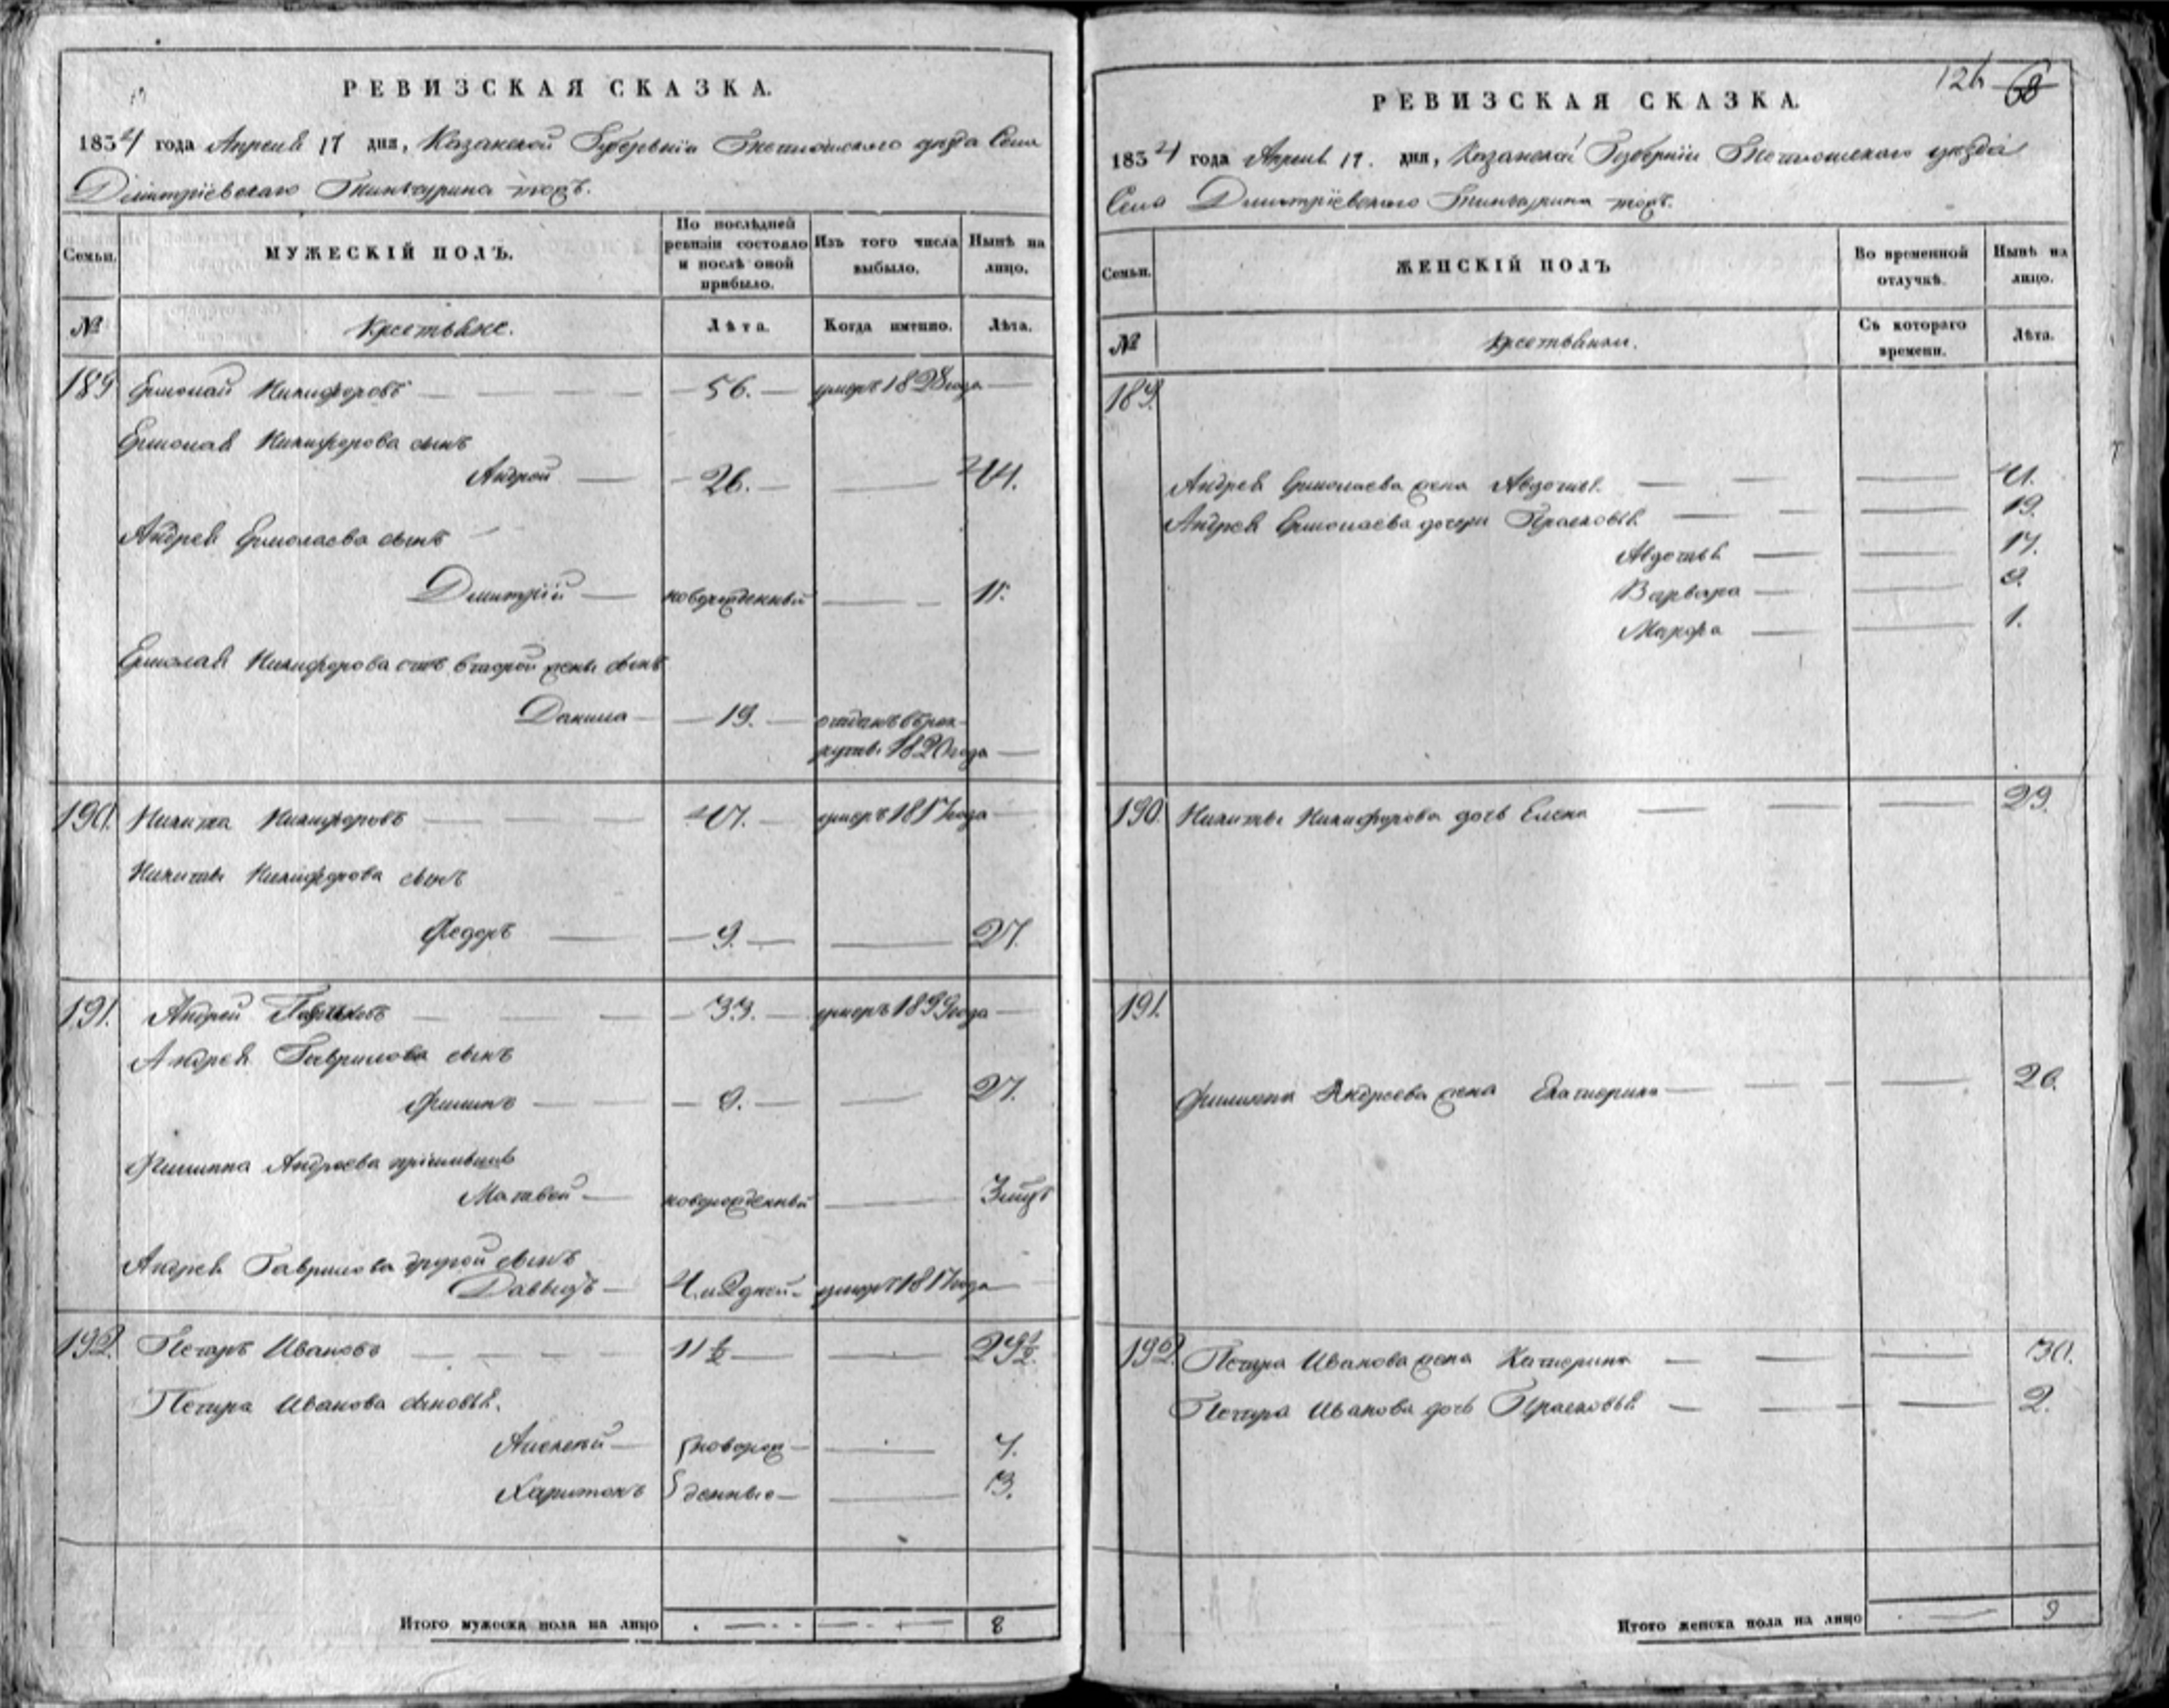 РЕВИЗСКАЯ СКАЗКА.
1834 года Апреля 17 дня, Казанской Губернiи уезда Села
Димитрiевскаго тожъ.
Семьи.
МУЖЕСКIЙ ПОЛЪ.
По послѣдней
ревизiи состояло
и послѣ оной
прибыло.
Изъ того числа
выбыло.
Нынѣ на
лицо.
№
Крестьяне.
Лѣта.
Когда именно.
Лѣта.
189 Ермолай Никифоровъ 56. умеръ 1828 года
Ермолая Никифорова сынъ
Андрей 26. 44.
Андрея Ермолаева сынъ
Дмитрiй новорожденный 11.
Ермолая Никифорова отъ второй жены сынъ
Данила 19. отданъ в рек
руты 1820 года
190. Никита Никифоровъ 47. умеръ 1817 года
Никиты Никифорова сынъ
Федоръ 9. 27.
191. Андрей Гавриловъ 33. умеръ года
Андрея Гаврилова сынъ
Филипъ 9. 27.
Филиппа Андреева
Матвей новорожденный
Андрея Гаврилова другой сынъ
Давыдъ умеръ 1817 года
192. Петръ Ивановъ 11½ 29½.
Петра Иванова сыновья.
Алексей новорож 7.
Харитонъ денные 3.
Итого мужеска пола на лицо 8
126 68
РЕВИЗСКАЯ СКАЗКА.
1834 года Апреля 17. дня, Казанской Губернiи уезда
Села Дмитрiевскаго тожъ.
Семьи.
ЖЕНСКIЙ ПОЛЪ
Во временной
отлучкѣ.
Нынѣ на
лицо.
№
Крестьянки.
Съ котораго
времени.
Лѣта.
189.
Андрея Ермолаева жена Авдотья 41.
Андрея Ермолаева дочери Прасковья 19.
Авдотья 17.
Варвара 9.
Марфа 1.
190. Никиты Никифорова дочь Елена 29.
191.
Филиппа Андреева жена Екатерина 26.
192. Петра Иванова жена Катерина 30.
Петра Иванова дочь Прасковья 2.
Итого женска пола на лицо 9